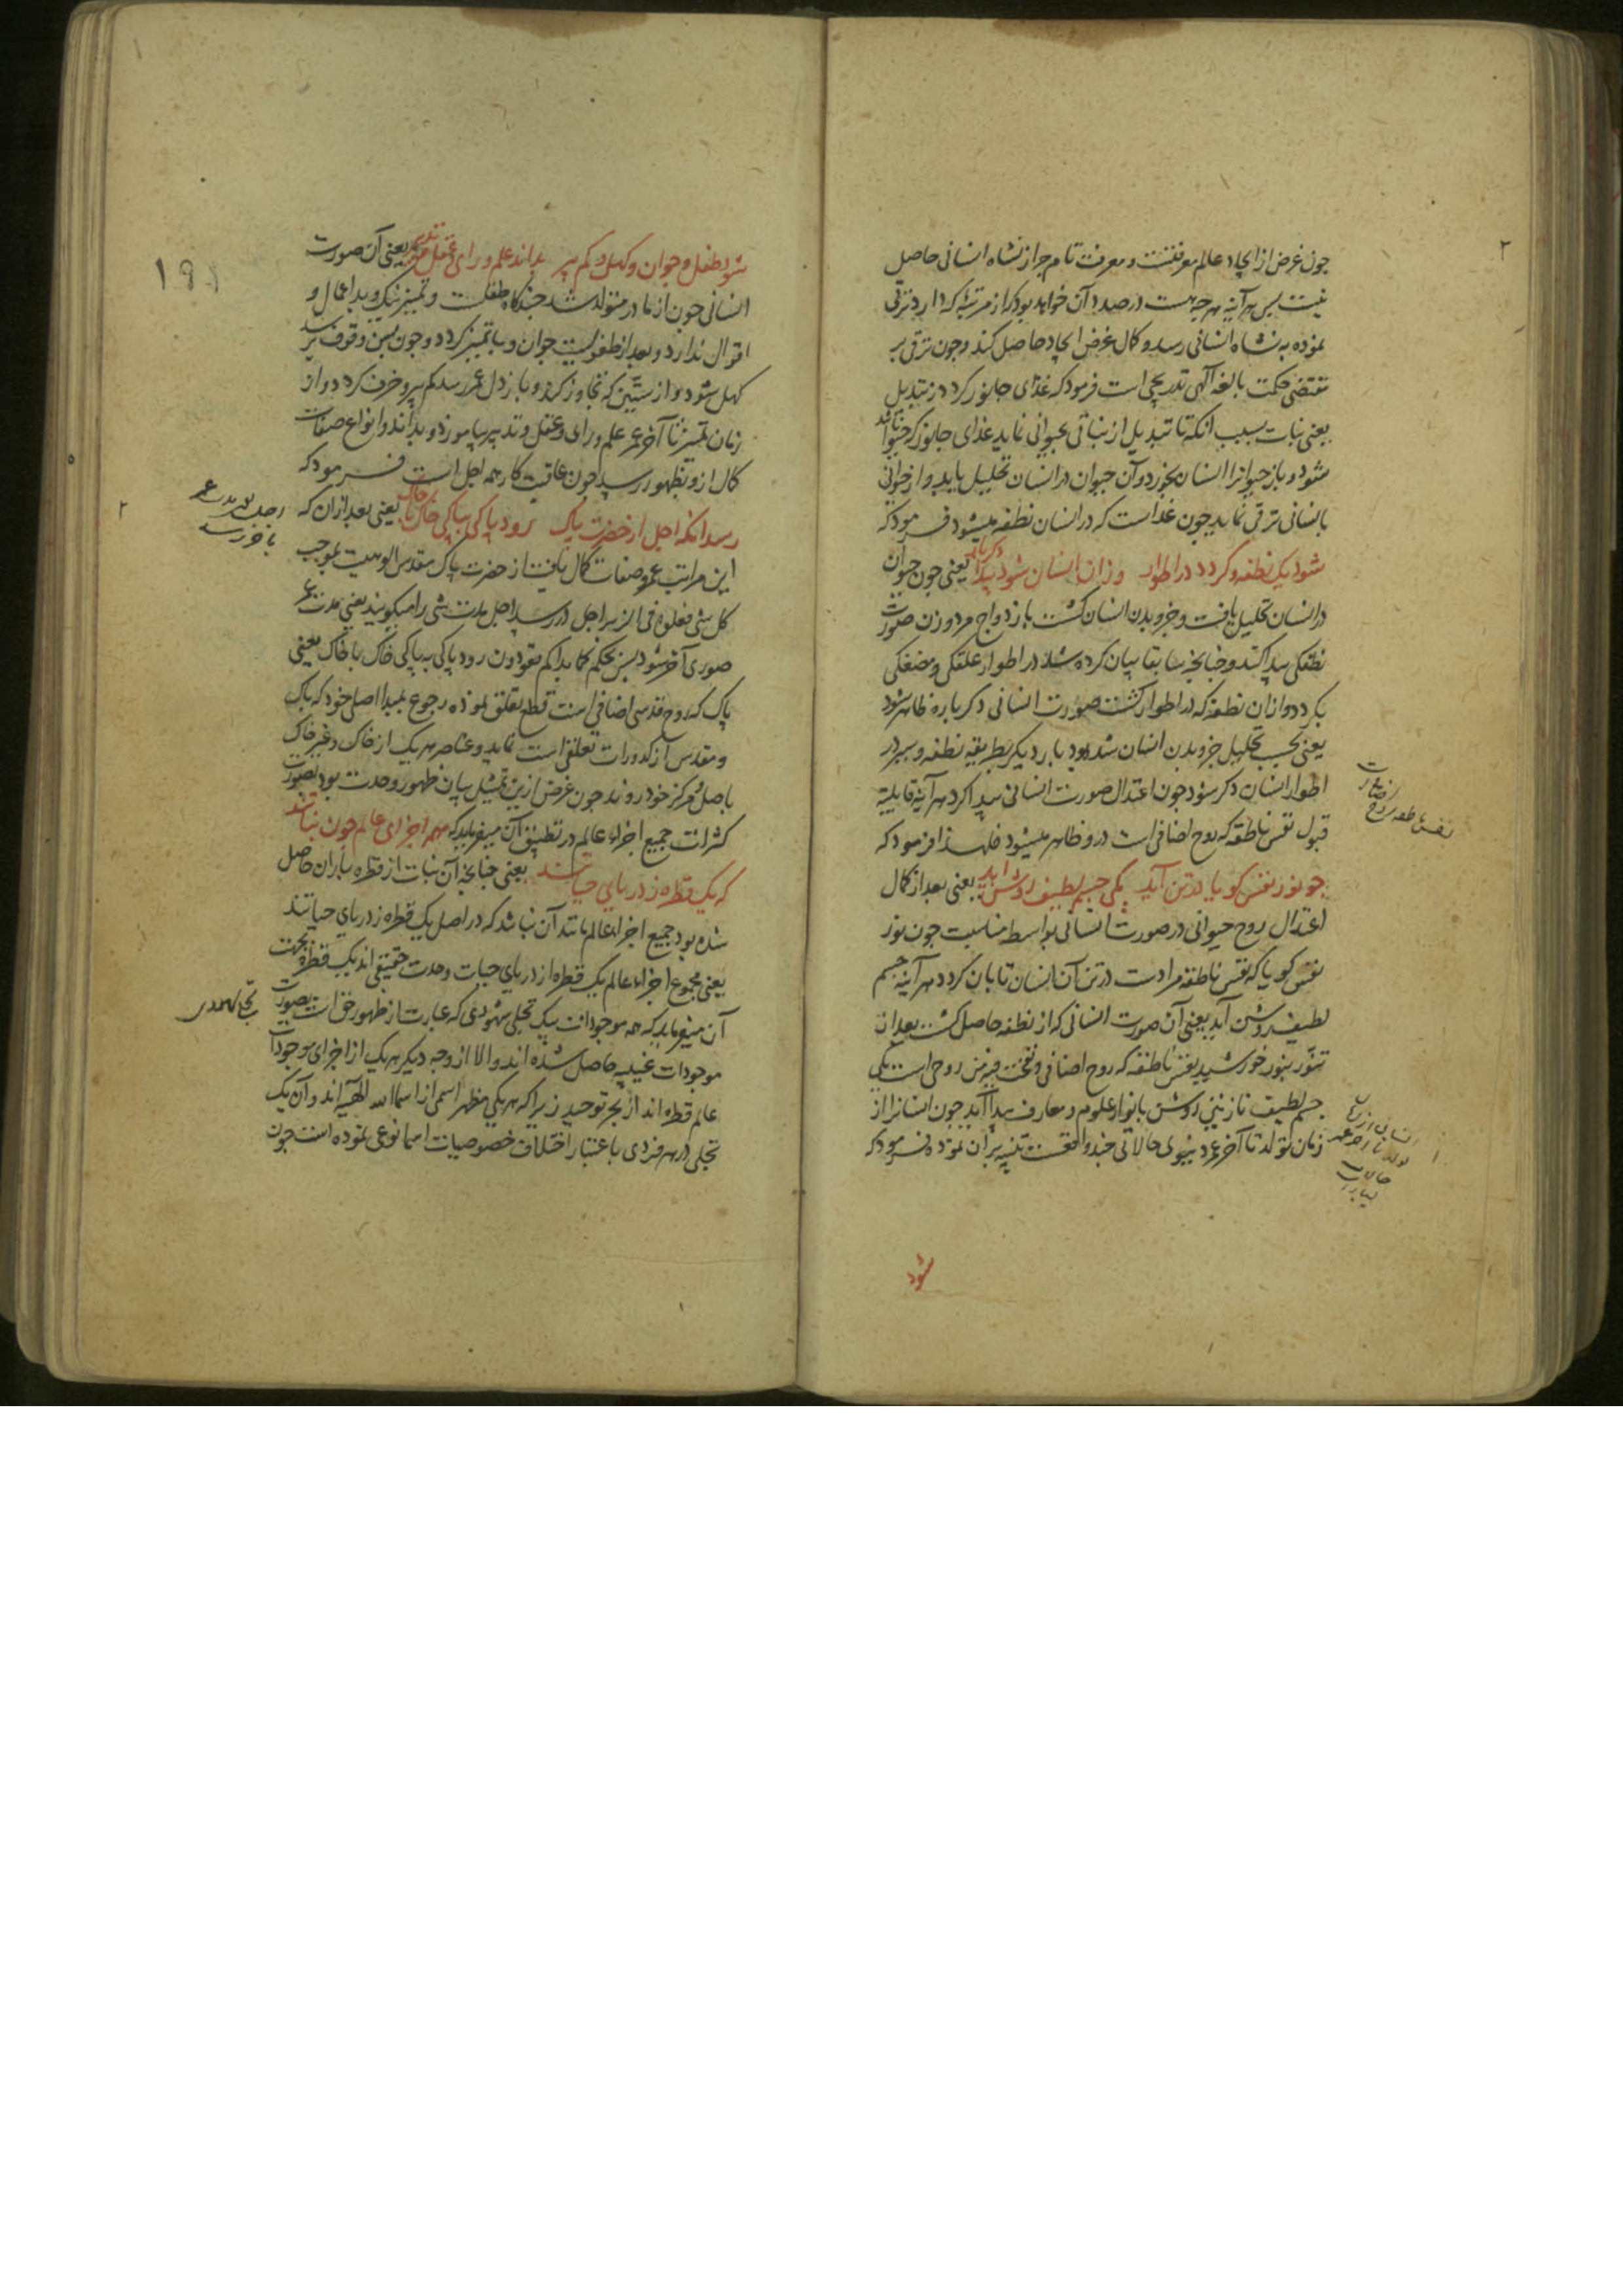 چون غرض از ایجاد عالم معرفتست و معرفت تام جز از نشاه انسانی حاصل
نیست پس هر آینه هر چه هست در صدد آن خواهد بود که از مرتبهٔ که دارد ترقی
نموده به نشاه انسانی رسد و کمال غرض ایجاد حاصل کند و چون ترقی بر
مقتضی حکمت بالغه آلهی تدریجی است فرمود که غذای جانور کردد ز تبدیل
یعنی نبات بسبب انکه تا تبدیل از نباتی بحیوانی نماید غذای جانور که حیوان باشد
شود و باز حیوانرا انسان بخورد و آن حیوان در انسان تحلیل یابد و از حیوانی
بانسانی ترقی نماید چون غذاست که در انسان نطفه میشود فرمود که
شود یک نطفه و کردد در اطوار وزان انسان شود پیدا دکر بار یعنی چون حیوان
در انسان تحلیل یافت و جزو بدن انسان کشت بازدواج مرد و زن صورت
نطفکی پیدا کند و چنانچه سابقا بیان کرده شد در اطوار علقکی و مضغکی
بکردد و از ان نطفه که در اطوار کشت صورت انسانی دکرباره ظاهر شود
یعنی بحسب تحلیل جزو بدن انسان شده بود بار دیکر بطریقه نطفه و سیر در
اطوار انسان دکر شود چون اعتدال صورت انسانی پیدا کرد هر آینه قابلیت
قبول نفس ناطقه که روح اضافی است درو ظاهر میشود فلهذا فرمود که
چو نور نفس کویا در تن آید یکی جسم لطیف روشن آید یعنی بعد از کمال
اعتدال روح حیوانی در صورت انسانی بواسطه مناسبت چون نور
نفس کویا که نفس ناطقه مراد ست در تن آن انسان تابان کردد هر آینه جسم
لطیف روشن آید یعنی آن صورت انسانی که از نطفه حاصل کشت بعد از
تنور بنور خورشید نفس ناطقه که روح اضافی و نفخت فیه من روحی است یکی
جسم لطیف نازنینی روشن بانوار علوم و معارف پیدا آید چون انسانرا از
زمان تولد تا آخر عمر دنیوی حالاتی چند واقعست تنبیه بر آن نموده فرمود که
شود
شود طفل و جوان و کهل و کم پیر بداند علم و رای و عقل و تدبیر یعنی آن صورت
انسانی چون از مادر متولد شد چندکاه طفلست و تمییز نیک و بد اعمال و
اقوال ندارد و بعد از طفولیت جوان و با تمییز کردد و چون بسن وقوف رسد
کهل شود و از ستین که تجاوز کرد و بارذل عمر رسد کم پیر و خرف کردد و از
زمان تمییز تا آخر عمر علم و رای و عقل و تدبیر بیاموزد و بداند و انواع صفات
کمال ازو بظهور رسد چون عاقبت کار همه اجل است فرمود که
رسد انکه اجل از حضرت پاک رود پاکی بپاکی خاک با خاک یعنی بعد از ان که
این مراتب عمر و صفات کمال یافت از حضرت پاک مقدس الوهیت بموجب
کل شی فعلوه فی الزبر اجل در رسد اجل مدت شی را میکویند یعنی مدت عمر
صوری آخر شود پس بحکم کما بداکم تعودون رود پاکی به پاکی خاک با خاک یعنی
پاک که روح قدسی اضافی است قطع تعلق نموده رجوع بمبدا اصلی خود که پاک
و مقدس از کدورات تعلقات است نماید و عناصر هر یک از خاک و غیر خاک
باصل و مرکز خود روند چون غرض ازین تمثیل بیان ظهور وحدت بود بصورت
کثرات جمیع اجزاء عالم در تطبیق آن میفرماید که همه اجزای عالم چون نباتند
که یک قطره ز دریای حیاتند یعنی چنانچه آن نبات از قطره باران حاصل
شده بود جمیع اجزاء عالم مانند آن نبات باشد که در اصل یک قطره ز دریای حیاتند
یعنی مجموع اجزاء عالم یک قطره از دریای حیات وحدت حقیقی اند یک قطره بجهت
آن میفرماید که همه موجودات بیک تجلی شهودی که عبارت از ظهور حق است بصورت
موجودات غیبیه حاصل شده اند و الا از وجه دیکر هر یک از اجزای موجودات
عالم قطره اند از بحر توحید زیرا که هر یکی مظهر اسمی از اسماء الله الهیه اند و آن یک
تجلی در هر فردی باعتبار اختلاف خصوصیات اسما نوعی نموده است چون